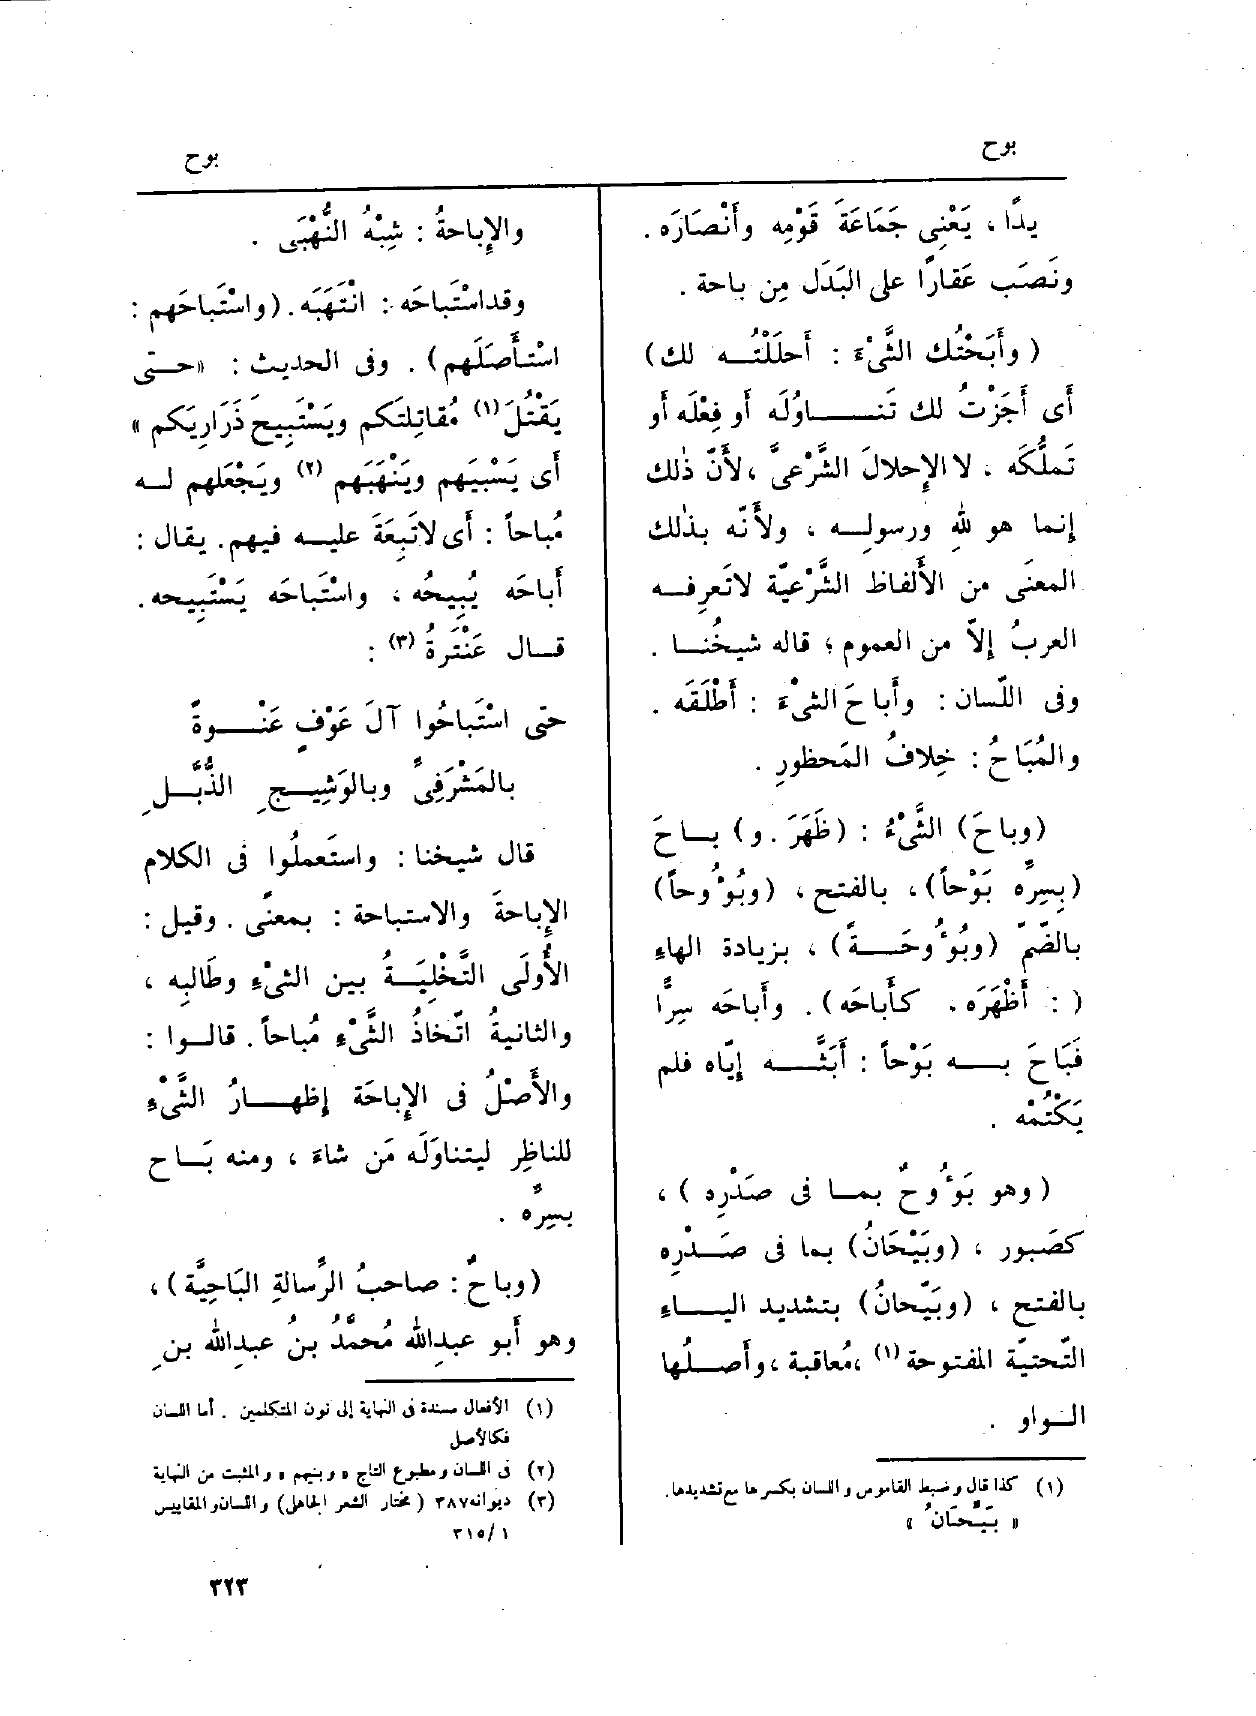 بوح
يدًا ، يَعْنِى جَمَاعَةَ قَوْمِه وأَنْصَارَه .
ونَصَب عَقَارًا على البَدَل مِن باحة .
( وأَبَحْتُك الشَّىْءَ : أَحلَلْتُه لك )
أَى أَجَزْتُ لك تَنَاوُلَه أَو فِعْلَه أَو
تَملُّكَه ، لا الإِحلالَ الشَّرْعىَّ ، لأَنّ ذٰلك
إِنما هو للهِ ورسولِه ، ولأَنّه بذٰلك
المعنَى من الأَلفاظ الشَّرْعيّة لا تَعرِفه
العربُ إِلاّ من العموم ؛ قاله شيخُنا .
وفى اللّسان : وأَباحَ الشىْءَ : أَطْلَقَه .
والمُبَاحُ : خِلافُ المَحظورِ .
( وباحَ ) الشَّىْءُ : ( ظَهَرَ . و ) باحَ
( بِسِرِّه بَوْحاً ) ، بالفتح ، ( وبُؤُوحاً )
بالضّمّ ( وبُؤُوحَةً ) ، بزيادة الهاءِ
( : أَظْهَرَه ، كأَباحَه ) . وأَباحَه سِرًّا
فَبَاحَ بِه بَوْحاً : أَبَثَّه إِيّاه فلم
يَكْتُمْه .
( وهو بَؤُوحٌ بما فى صَدْرِه ) ،
كصَبور ، ( وبَيْحَانُ ) بما فى صَدْرِه
بالفتح ، ( وبَيّحانُ ) بتشديد الياءِ
التّحتيّة المفتوحة (١) ، مُعاقبة ، وأَصلُها
الواو .
(١) كذا قال وضبط القاموس واللسان بكسرها مع تشديدها .
« بَيِّحَانُ »
بوح
والإِباحةُ : شِبْهُ النُّهْبَى .
وقد استَبَاحَه : انْتَهَبَه . ( واسْتَبَاحَهم :
اسْتَأْصَلَهم ) . وفى الحديث : « حتى
يَقْتُلَ (١) مُقاتِلتَكم ويَسْتَبِيحَ ذَرَارِيَكم »
أَى يَسْبِيَهم ويَنْهَبَهم (٢) ويَجْعَلهم له
مُباحاً : أَى لا تَبِعَةَ عليه فيهم . يقال :
أَباحَه يُبِيحُه ، واسْتَباحَه يَسْتَبِيحه .
قال عَنْتَرةُ (٣) :
حتى اسْتَبَاحُوا آلَ عَوْفٍ عَنْوةً
بالمَشْرَفِىِّ وبالوَشِيجِ الذُّبَّلِ
قال شيخنا : واستَعملُوا فى الكلام
الإِباحةَ والاستباحة : بمعنًى . وقيل :
الأُولَى التَّخْلِيَةُ بين الشىْءِ وطَالِبِه ،
والثانيةُ اتّخاذُ الشَّىْءِ مُباحاً . قالوا :
والأَصْلُ فى الإِباحَة إِظهارُ الشَّىْءِ
للناظِر ليتناوَلَه مَن شاءَ ، ومنه بَاح
بسِرِّه .
( وباحٌ : صاحبُ الرِّسالةِ البَاحِيَّة ) ،
وهو أَبو عبدِ الله مُحمَّدُ بنُ عبدِ الله بنِ
(١) الأفعال مسندة فى النهاية إلى نون المتكلمين . أما اللسان
فكالأصل
(٢) فى اللسان ومطبوع التاج « وبنيهم » والمثبت من النهاية
(٣) ديوانه ٣٨٧ ( مختار الشعر الجاهلى ) واللسان والمقاييس
٣١٥/١
٣٢٣